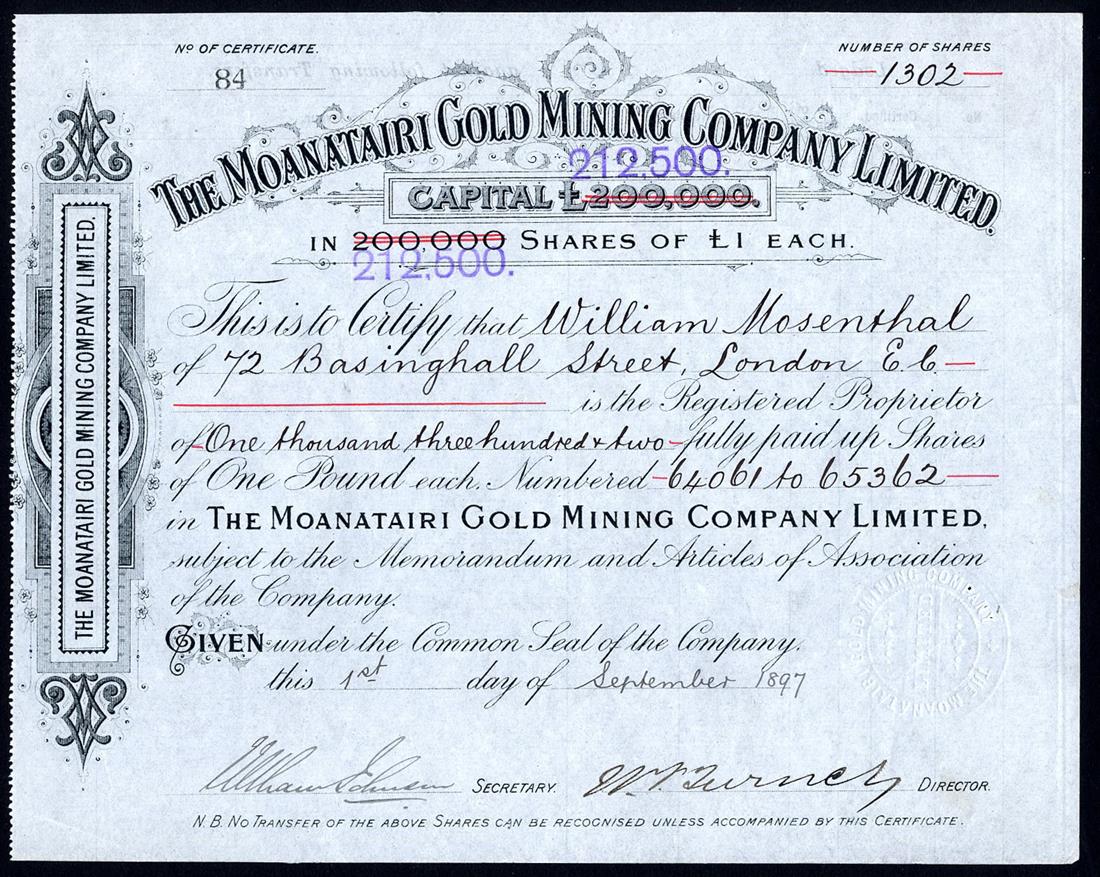 No OF CERTIFICATE.
84
NUMBER OF SHARES
1302
THE MOANATAIRI GOLD MINING COMPANY LIMITED.
212,500.
CAPITAL £200,000.
IN 200,000 SHARES OF £1 EACH.
212,500.
This is to Certify that William Mosenthal
of 72 Basinghall Street, London E.C
is the Registered Proprietor
of One thousand three hundred & two fully paid up Shares
of One Pound each, Numbered 64061 to 65362
in THE MOANATAIRI GOLD MINING COMPANY LIMITED,
subject to the Memorandum and Articles of Association
of the Company.
GIVEN under the Common Seal of the Company.
this 1st day of September 1897
William Johnson SECRETARY. DIRECTOR.
N.B. NO TRANSFER OF THE ABOVE SHARES CAN BE RECOGNISED UNLESS ACCOMPANIED BY THIS CERTIFICATE.
THE MOANATAIRI GOLD MINING COMPANY LIMITED.
THE MOANATAIRI GOLD MINING COMPANY